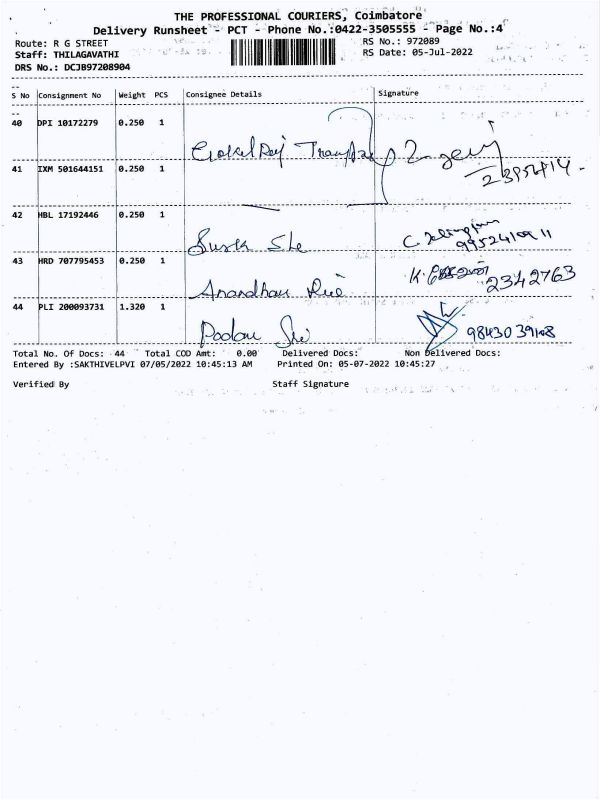 THE PROFESSIONAL COURIERS, Coimbatore
Delivery Runsheet - PCT - Phone No.:0422-3505555 - Page No.:4
Route: R G STREET RS No.: 972089
Staff: THILAGAVATHI RS Date: 05-Jul-2022
DRS No.: DCJB97208904
S No Consignment No Weight PCS Consignee Details Signature
40 DPI 10172279 0.250 1
41 IXM 501644151 0.250 1
42 HBL 17192446 0.250 1
9952410911
43 HRD 707795453 0.250 1 2342763
44 PLI 200093731 1.320 1
Total No. Of Docs: 44 Total COD Amt: 0.00 Delivered Docs: Non Delivered Docs:
Entered By :SAKTHIVELPVI 07/05/2022 10:45:13 AM Printed On: 05-07-2022 10:45:27
Verified By Staff Signature